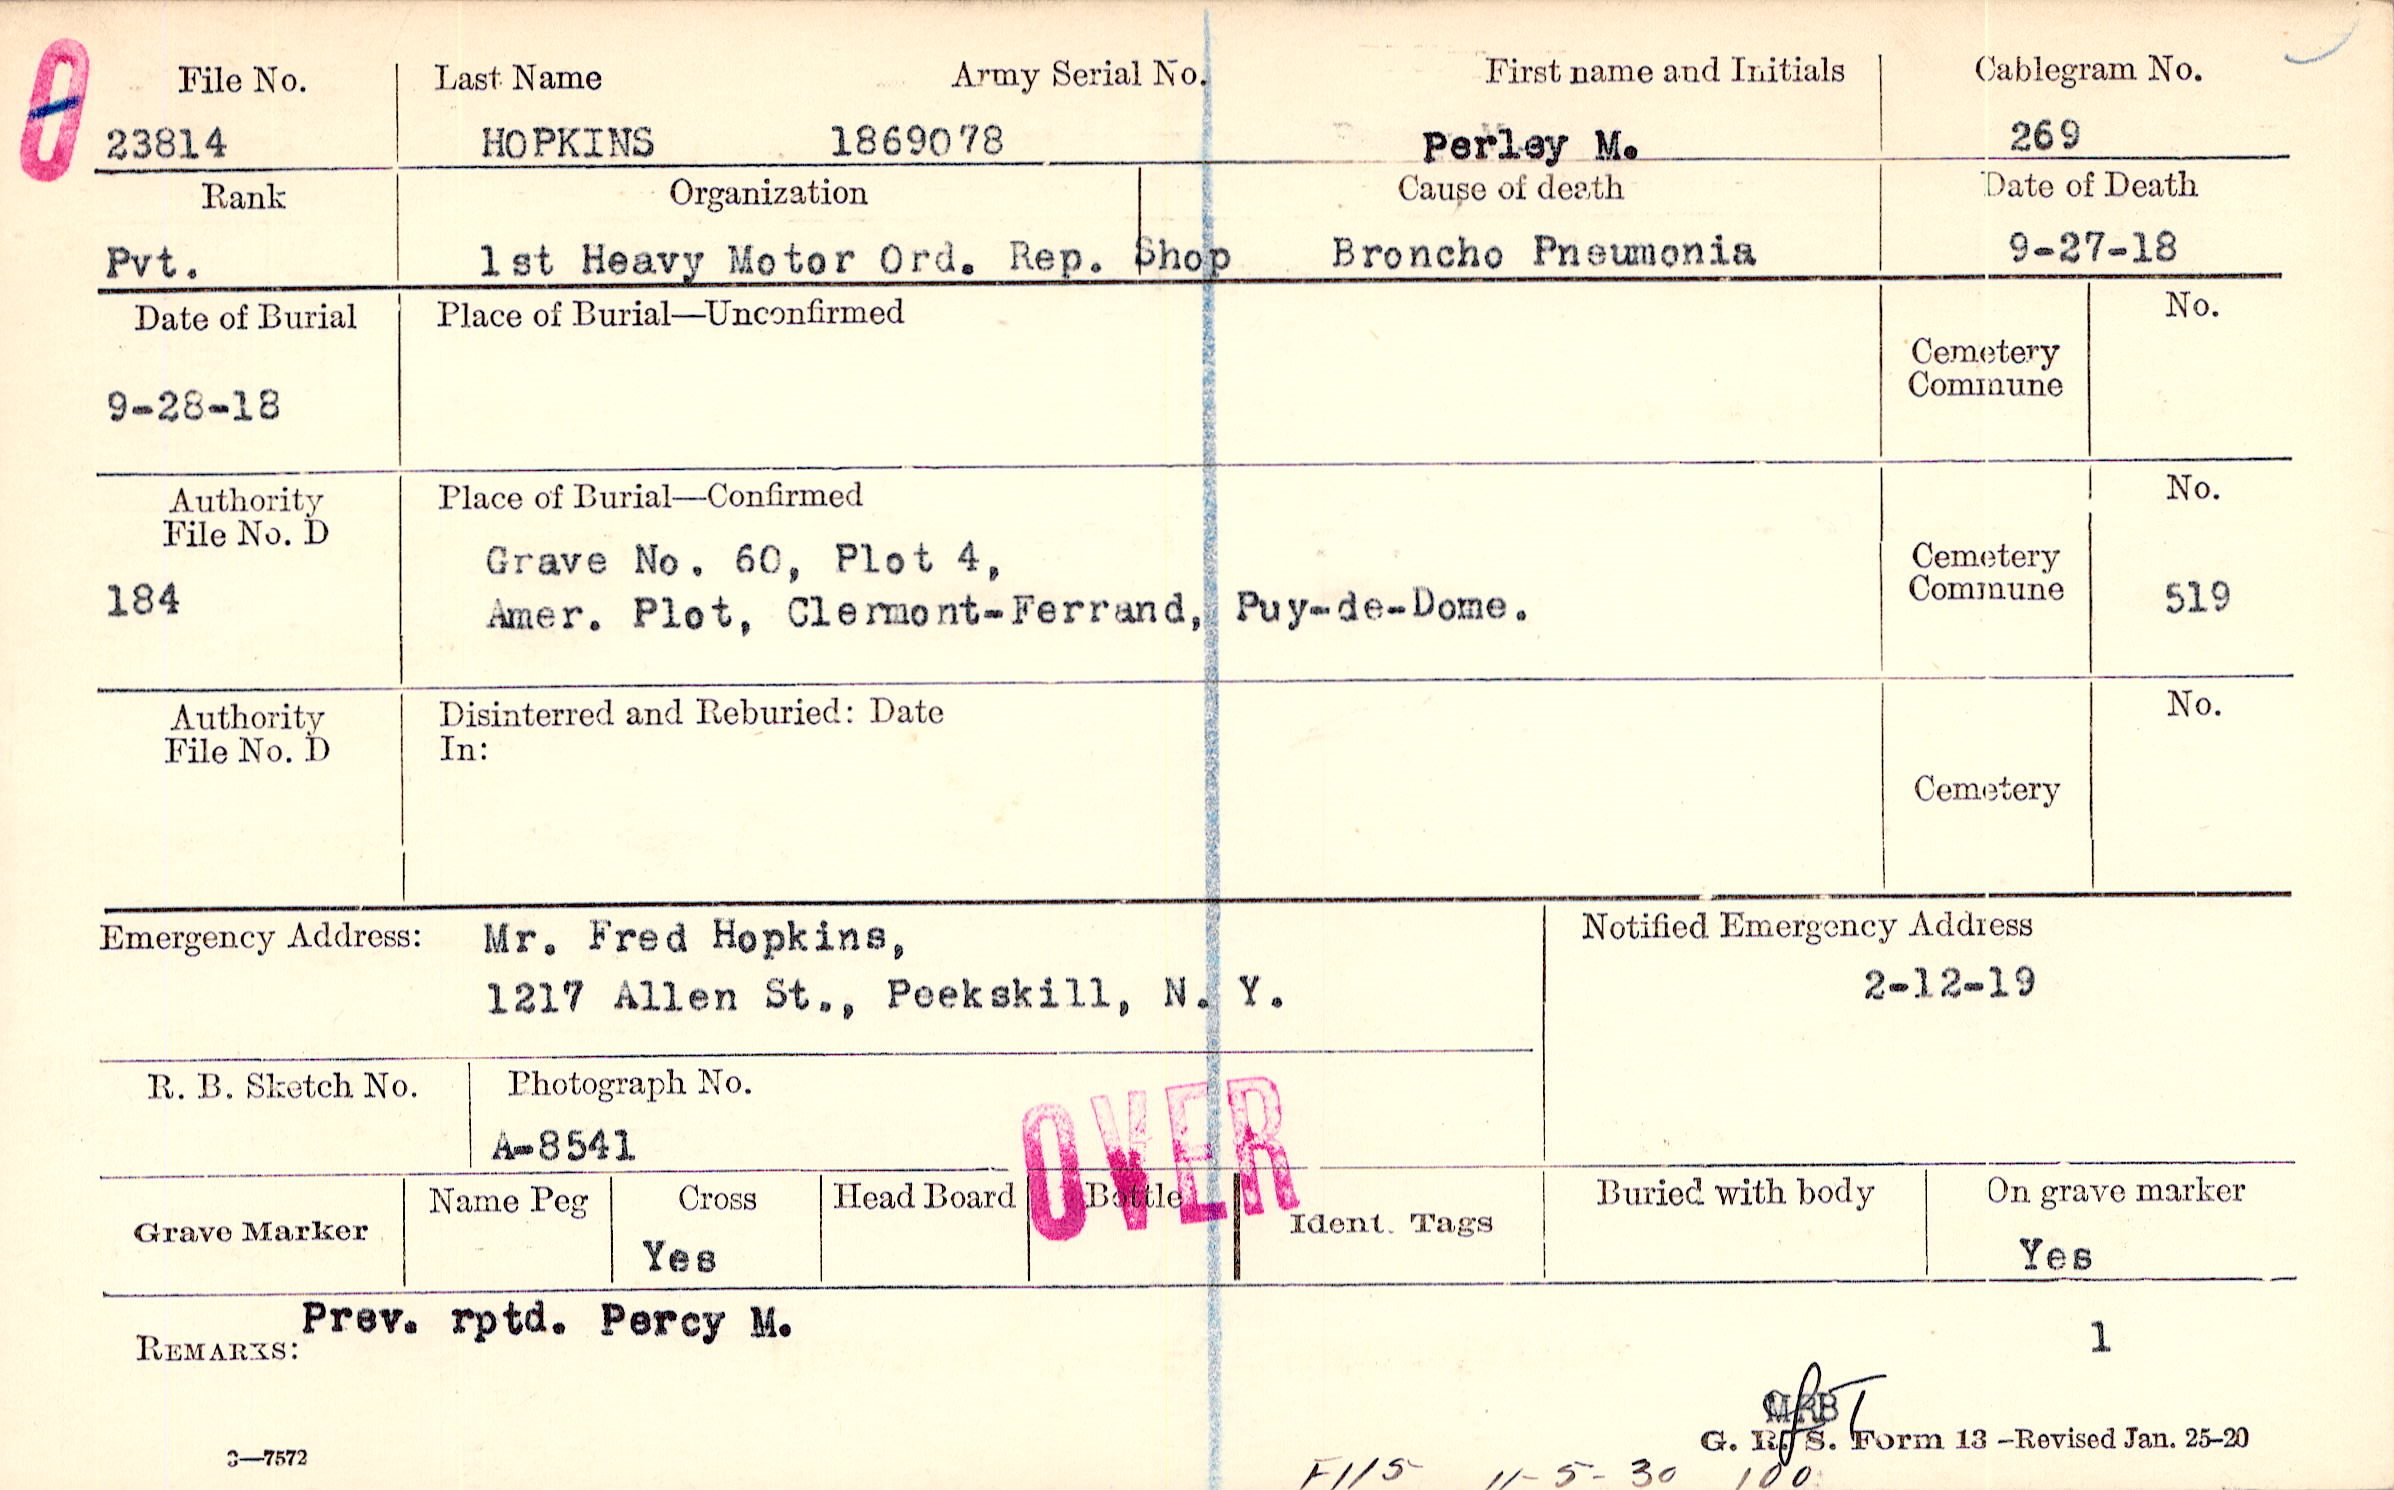 File No. Last Name Army Serial No. First name and Initials Cablegram No.
23814 HOPKINS 1869078 Perley M. 269
Rank Organization Cause of death Date of Death
Pvt. 1st Heavy Motor Ord. Rep. Shop Broncho Pneumonia 9-27-18
Date of Burial Place of Burial—Unconfirmed No.
Cemetery
Commune
9-28-18
Authority Place of Burial—Confirmed No.
File No. D
Grave No. 60, Plot 4, Cemetery
184 Commune 519
Amer. Plot, Clermont-Ferrand, Puy-de-Dome.
Authority Disinterred and Reburied: Date No.
File No. D In:
Cemetery
Emergency Address: Mr. Fred Hopkins, Notified Emergency Address
1217 Allen St., Peekskill, N. Y. 2-12-19
R. B. Sketch No. Photograph No.
A-8541
OVER
Name Peg Cross Head Board Bottle Buried with body On grave marker
Grave Marker Ident. Tags
Yes Yes
Prev. rptd. Percy M.
REMARKS: 1
MRB
G. R. S. Form 13 -Revised Jan. 25-20
3—7572
F115 11-5-30 100